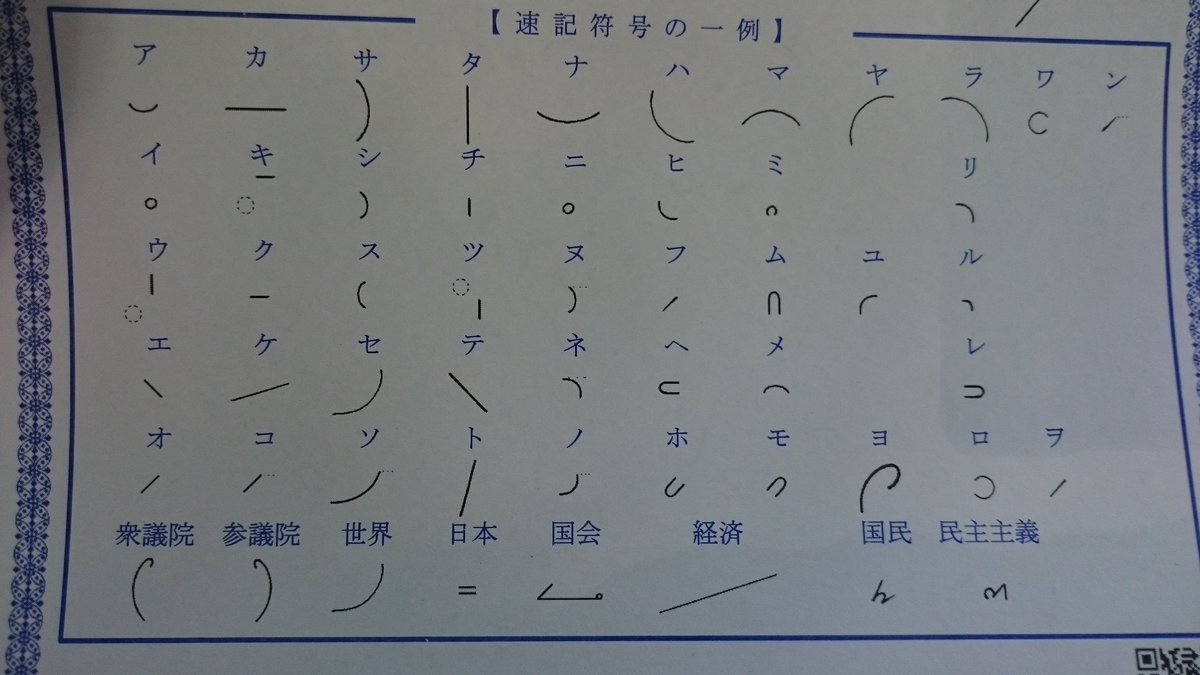 【速記符号の一例】
ア カ サ タ ナ ハ マ ヤ ラ ワ ン
イ キ シ チ ニ ヒ ミ リ
ウ ク ス ツ ヌ フ ム ユ ル
エ ケ セ テ ネ ヘ メ レ
オ コ ソ ト ノ ホ モ ヨ ロ ヲ
衆議院 参議院 世界 日本 国会 経済 国民 民主主義